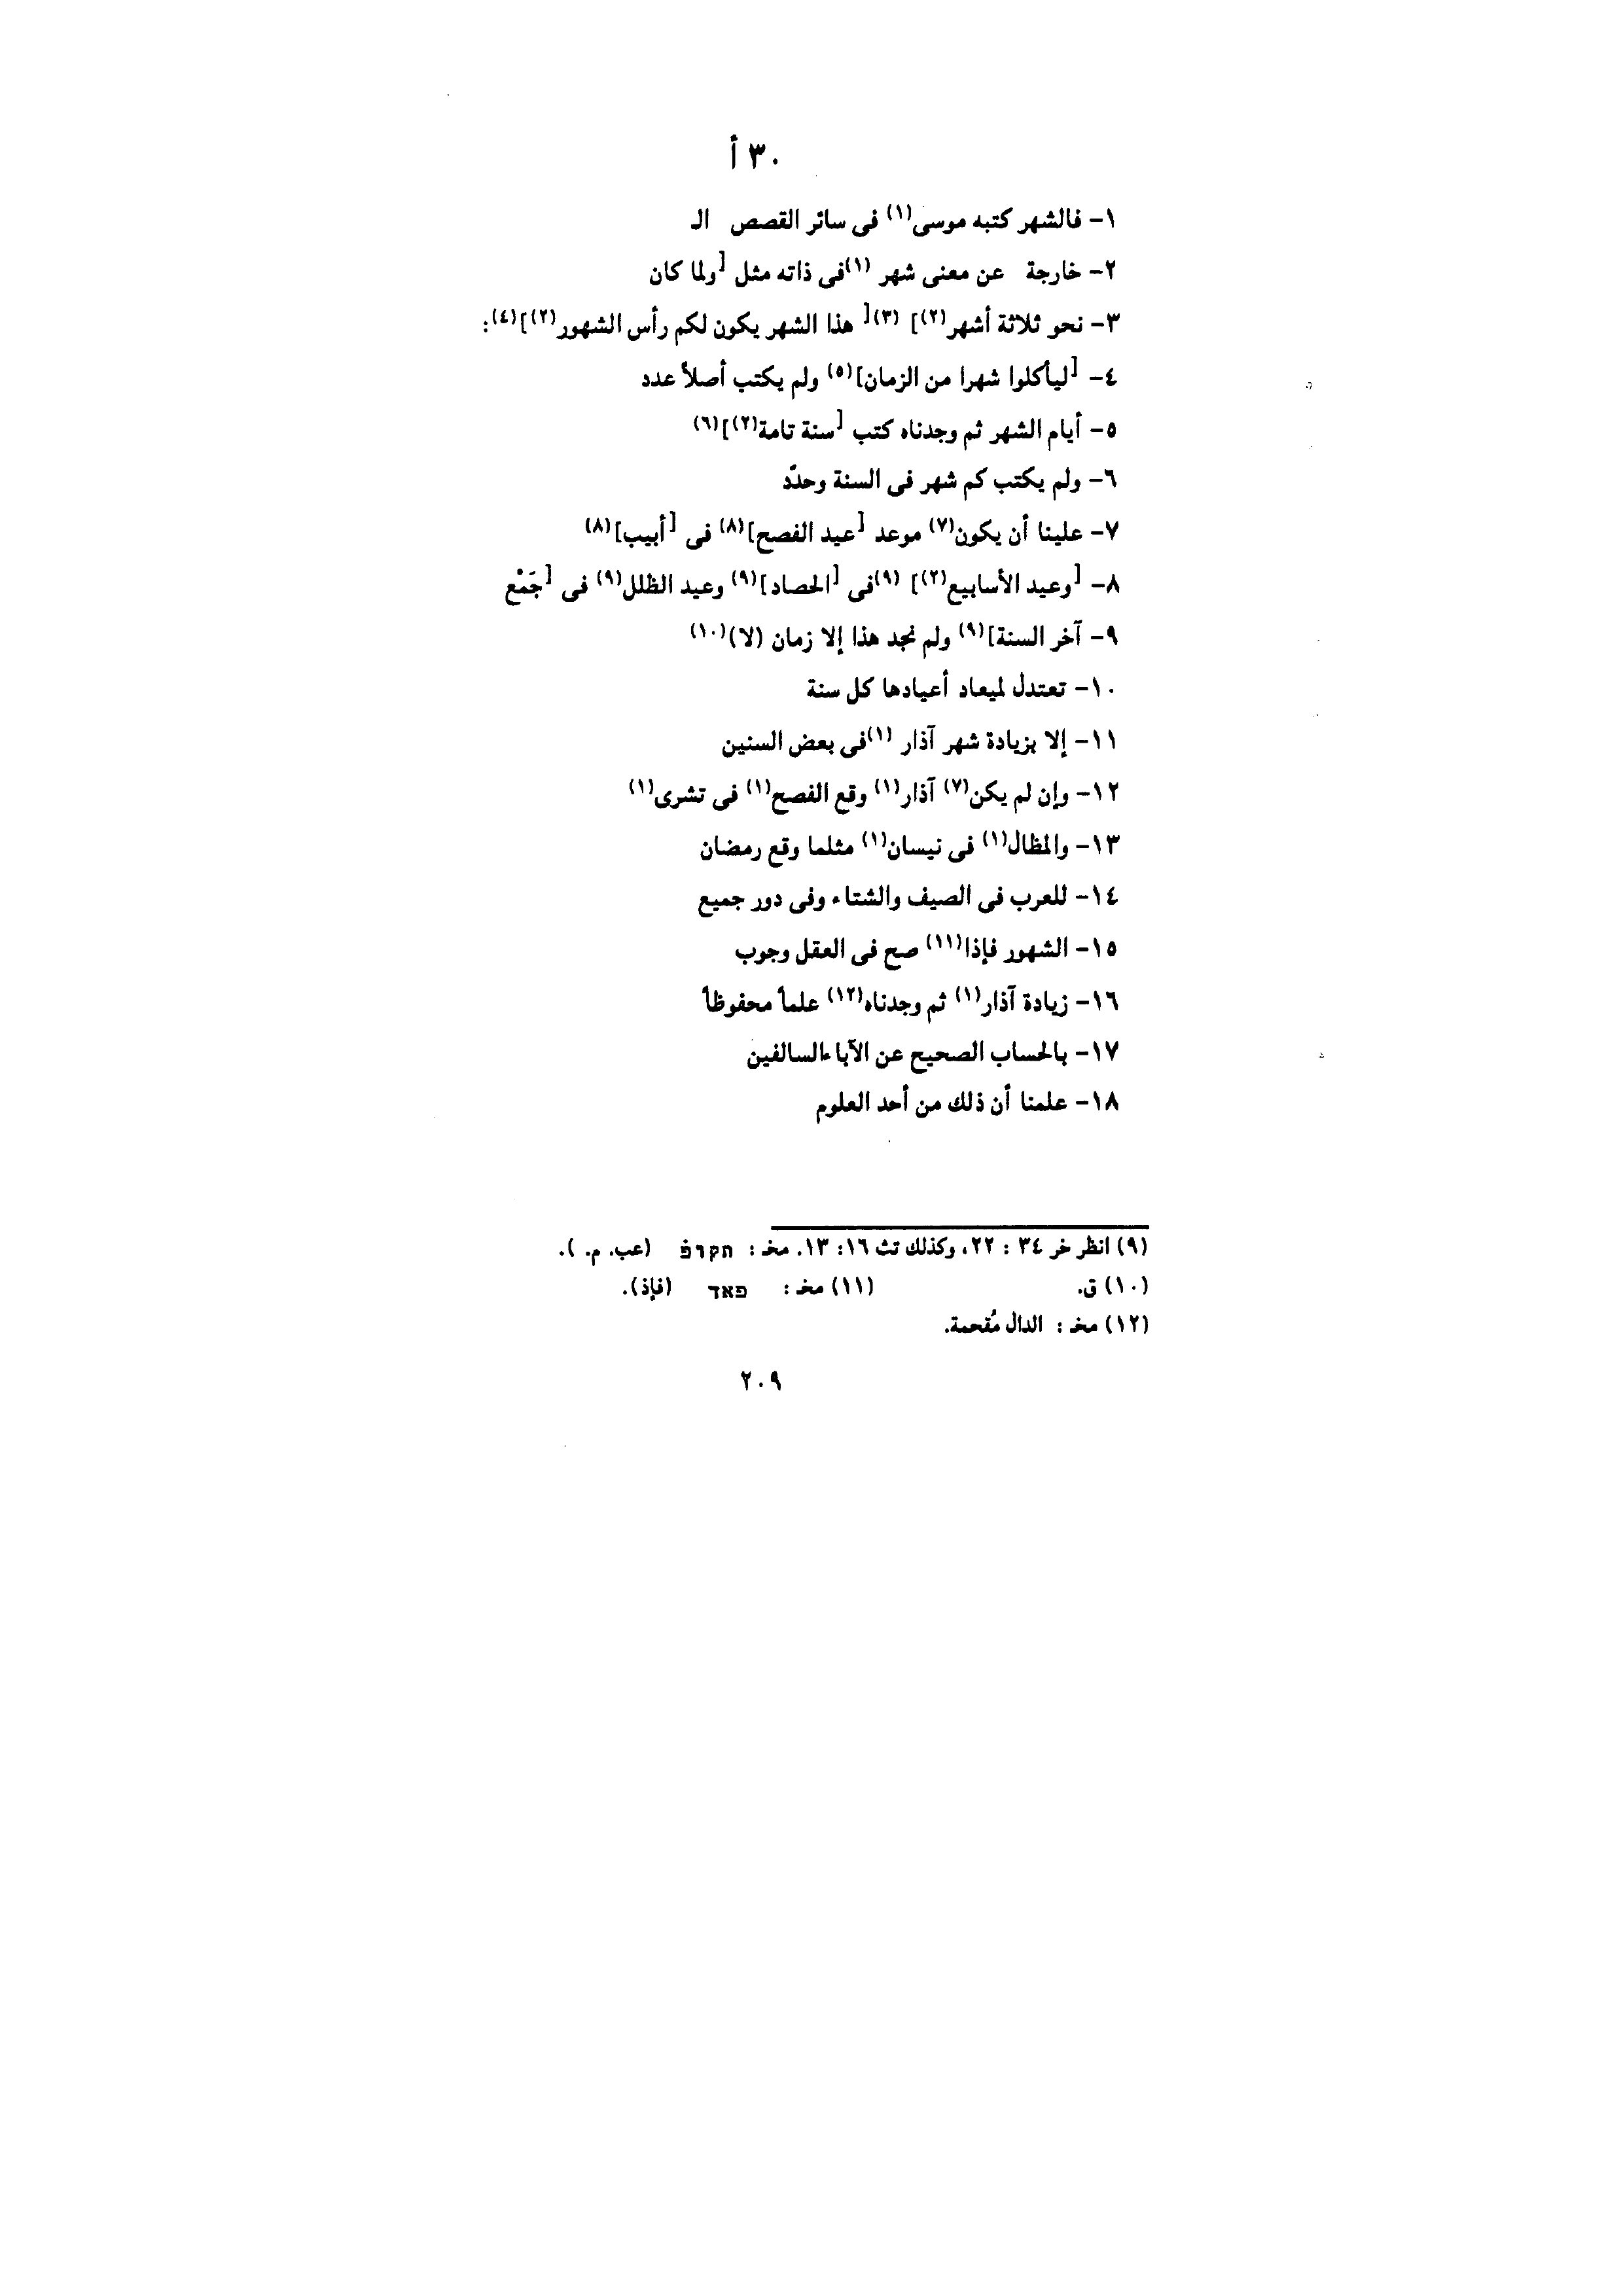 ٣٠ أ
١- فالشهر كتبه موسى(١) فى سائر القصص الـ
٢- خارجة عن معنى شهر (١)فى ذاته مثل [ولما كان
٣- نحو ثلاثة أشهر(٢)] (٣)[ هذا الشهر يكون لكم رأس الشهور(٢)](٤):
٤- [ليأكلوا شهرا من الزمان](٥) ولم يكتب أصلاً عدد
٥- أيام الشهر ثم وجدناه كتب [سنة تامة(٢)](٦)
٦- ولم يكتب كم شهر فى السنة وحدّد
٧- علينا أن يكون(٧) موعد [عيد الفصح](٨) فى [أبيب](٨)
٨- [وعيد الأسابيع(٢)] (٩)فى [الحصاد](٩) وعيد الظلل(٩) فى [جَمْع
٩- آخر السنة](٩) ولم نجد هذا إلا زمان (لا)(١٠)
١٠- تعتدل لميعاد أعيادها كل سنة
١١- إلا بزيادة شهر آذار (١)فى بعض السنين
١٢- وإن لم يكن(٧) آذار(١) وقع الفصح(١) فى تشرى(١)
١٣- والمظال(١) فى نيسان(١) مثلما وقع رمضان
١٤- للعرب فى الصيف والشتاء وفى دور جميع
١٥- الشهور فإذا(١١) صح فى العقل وجوب
١٦- زيادة آذار(١) ثم وجدناه(١٢) علماً محفوظاً
١٧- بالحساب الصحيح عن الآباء السالفين
١٨- علمنا أن ذلك من أحد العلوم
(٩) انظر خر ٣٤ : ٢٢، وكذلك تث ١٦: ١٣. مخـ : (عب. م. ).
(١٠) ق. (١١) مخـ : פאד (فإذ).
(١٢) مخـ : الدال مُقحمة.
٢٠٩